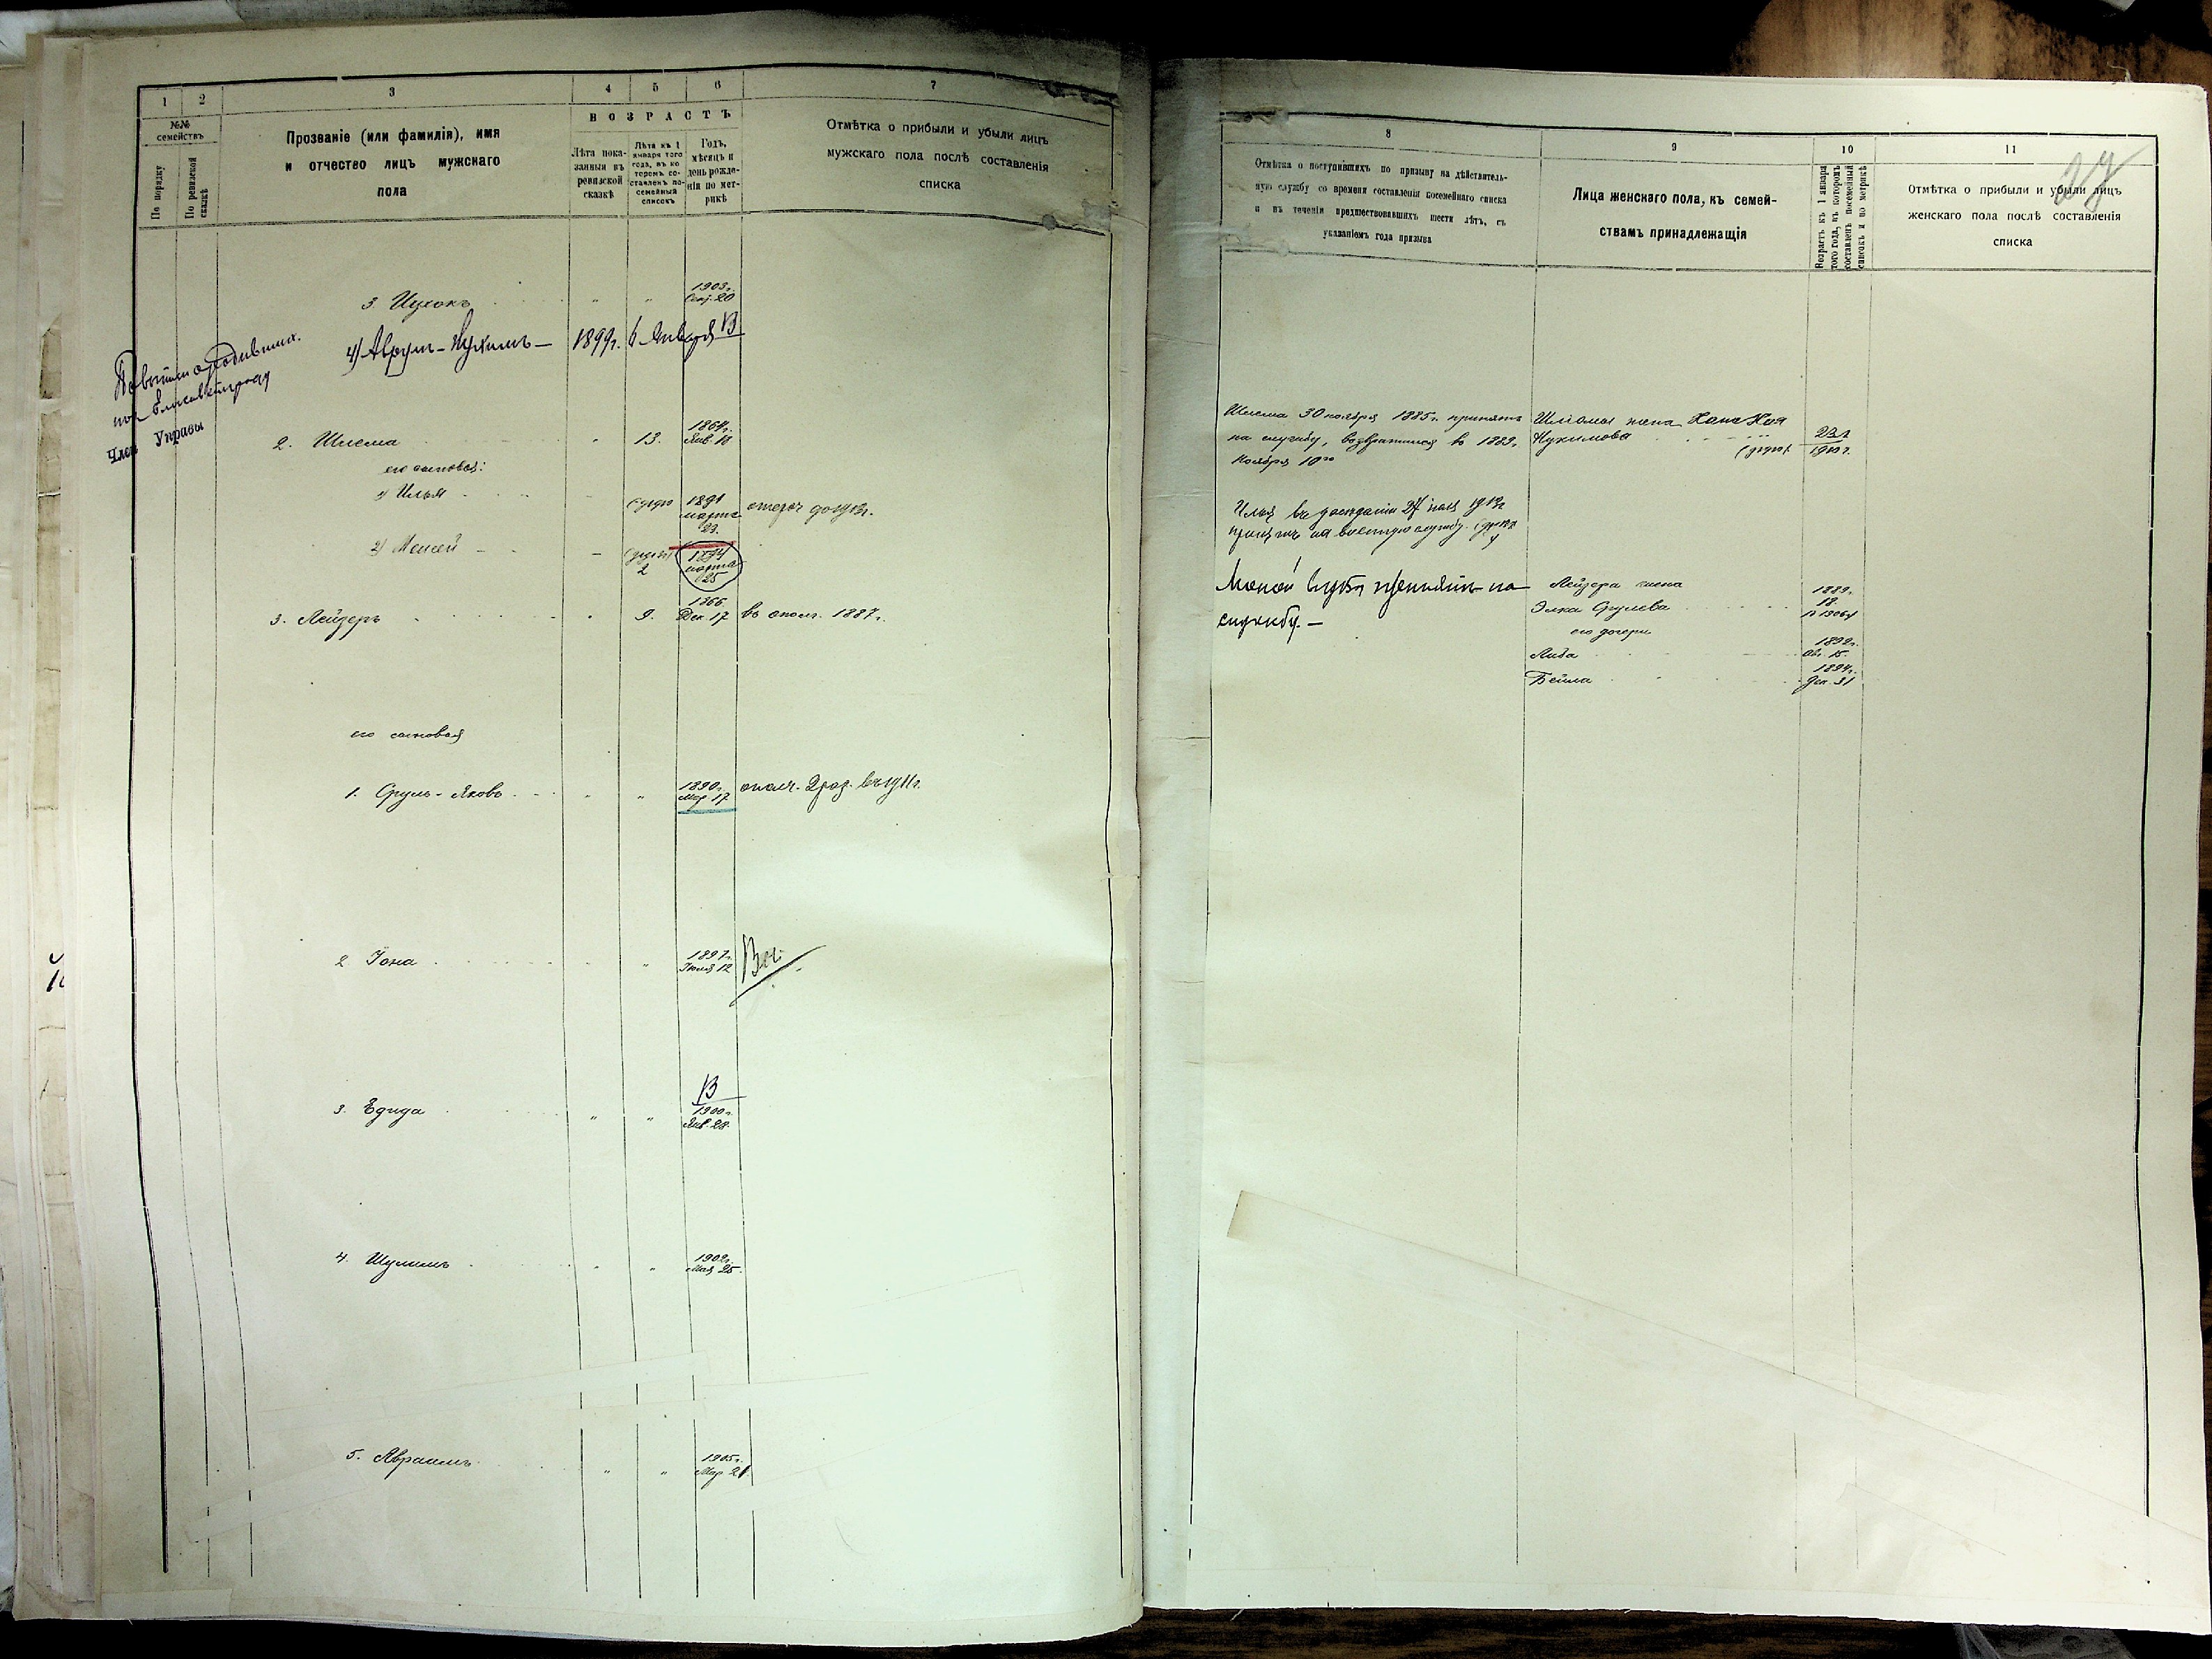 1
2
3
4
5
6
7
№№ семействъ
По порядку
По ревизской сказкѣ
Прозваніе (или фамилія), имя
и отчество лицъ мужскаго
пола
ВОЗРАСТЪ
Лѣта пока-
занныя въ
ревизской
сказкѣ
Лѣта къ 1
января того
года, въ ко
торомъ со-
ставленъ по-
семейный
списокъ
Годъ,
мѣсяцъ и
день рожде-
нія по мет-
рикѣ
Отмѣтка о прибыли и убыли лицъ
мужскаго пола послѣ составленія
списка
3. Ицхокъ
1903г.
20
4) Аврумъ-Нухимъ – 1899г. 6 Января В
Членъ Управы
2. Шлема 13.
1864г.
Янв. 18
его сыновья:
1) Илья
1891
марта
23.
2) Мосей
2
1894
марта
25
3. Лейзеръ 9.
1866.
Дек. 17
въ ополч. 1887г.
его сыновья
1. Сруль-Яковъ
1890г.
Мар 17
ополч. 2 раз. въ 1911г.
2 Іона
1897г.
Іюля 12
3. Едида
В
1900г.
Янв. 28.
4. Шулимъ
1902г.
Мая 25.
5. Авраамъ
1905г.
Мар 21.
8
9
10
11
27
Отмѣтка о поступившихъ по призыву на дѣйствитель-
ную службу со времени составленія посемейнаго списка
и въ теченіи предшествовавшихъ шести лѣтъ, съ
указаніемъ года призыва
Лица женскаго пола, къ семей-
ствамъ принадлежащія
Возрастъ къ 1 января
того года, въ которомъ
составленъ посемейный
списокъ и по метрикѣ
Отмѣтка о прибыли и убыли лицъ
женскаго пола послѣ составленія
списка
Шлема 30 ноября 1885г. принятъ
на службу, возвратился въ 1889г.
Ноября 10го
Шлiомы жена Хана Хая
Нухимова
1900г.
Илья въ засѣданіи 27
принятъ на военную службу.
принятъ на
службу. –
Лейзера жена
Элка Срулева
1889г.
18.
его дочери
Либа
1892г.
15.
Бейла
1894г.
Дек. 31